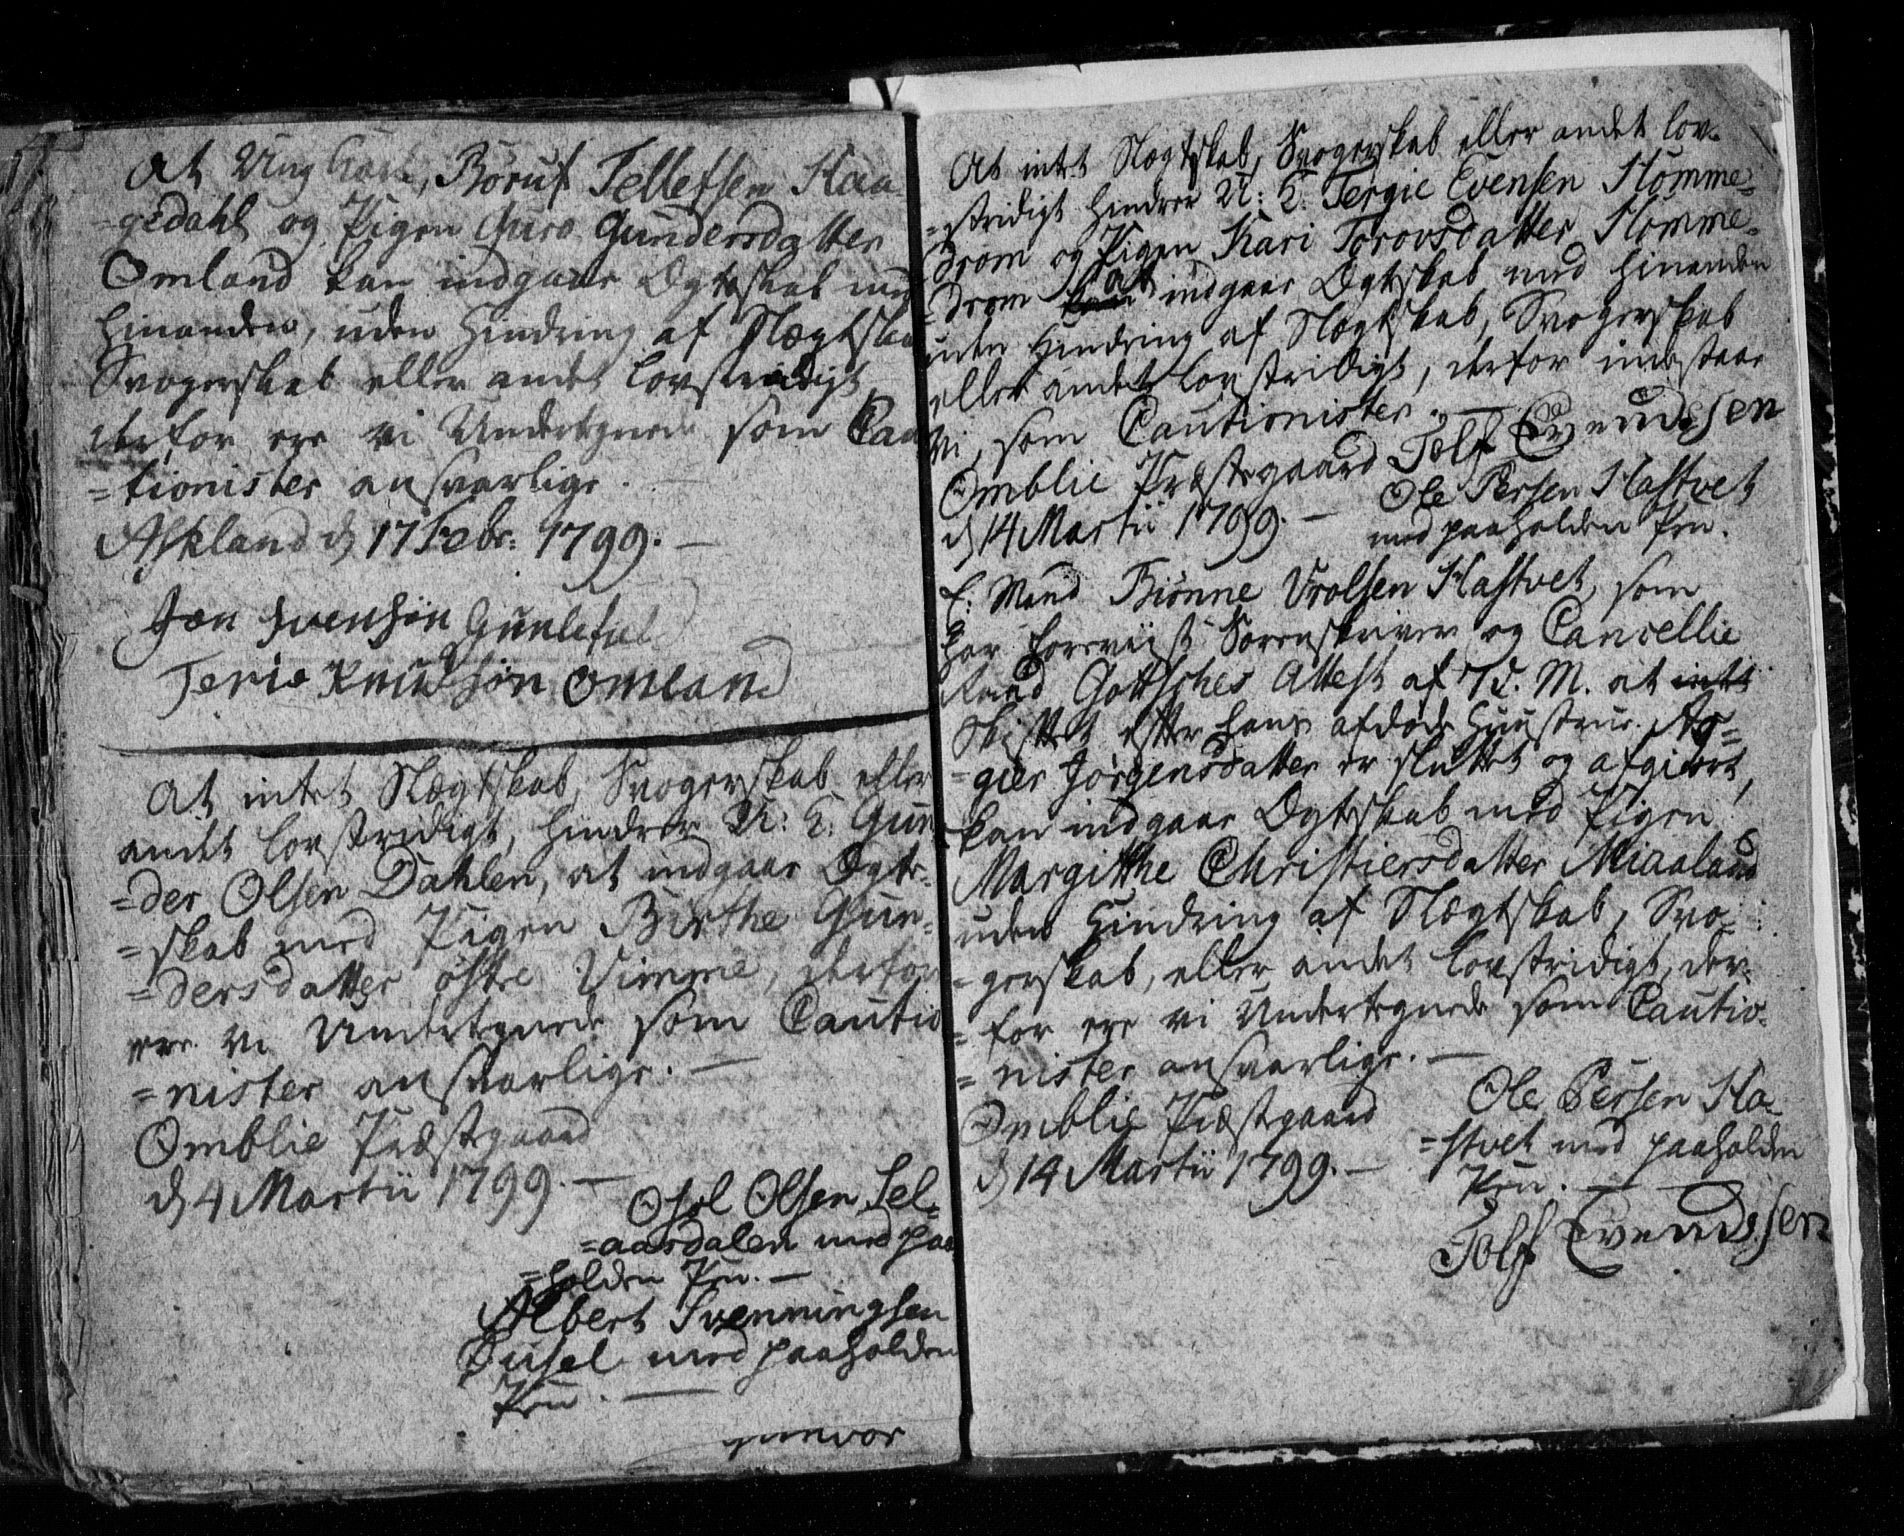 At Ung Karl, Börul Tellefsen Haa
=gedahl og Pigen Guro Gundersdatter
Omland kan indgaae Ægteskab med
hinanden, uden Hindring af Slægtskab
Svogerskab eller andet lovstridigt,
derfor ere vi Undertegnede som Cau
=tionister ansvarlige. —
Askland d 17 Febr: 1799. —
Jon Svenson Gunlefsel
Terie Knudson Omland
At intet Slægtskab, Svogerskab eller
andet lovstridigt, hindrer U: K: Gun
=der Olsen Dahlen, at indgaae Ægte=
=skab med Pigen Birthe Gun=
=dersdatter östre Vimme, derfor
ere vi Undertegnede som Cautio
=nister ansvarlige. —
Omblie Præstegaard
d 4 Martii 1799. —
Osol Olsen Sel=
=aasdalen med paa
=holden Pen. —
Albert Svenningsen
Öusel med paaholden
Pen. —
gunvor
At intet Slægtskab, Svogerskab eller andet lov=
=stridigt hindrer U: K: Tergie Evensen Homme=
drom og Pigen Kari Torovsdatter Homme=
=drom at indgaae Ægteskab med hinanden
uden Hindring af Slægtskab, Svogerskab
eller andet lovstridigt, derfor indestaae
vi, som Cautionister. —
Omblie Præstegaard
d 14 Martii 1799. —
Tolf Evendssen
Ole Persen Hastvet
med paaholden Pen.
E: Mand Biönne Vrolsen Hastvet, som
har foreviist Sorenskriver og Cancellie
Raad Gottsches Attest af 7 d. M. at intet
Skiftet efter hans afdöde Huustrue As=
=gier Jörgensdatter er sluttet og afgiort,
kan indgaae Ægteskab med Pigen
Margithe Christiersdatter Miaaland
uden Hindring af Slægtskab, Svo=
=gerskab, eller andet lovstridigt, der=
=for ere vi Undertegnede som Cautio=
=nister ansvarlige. —
Omblie Præstegaard
d 14 Martii 1799. —
Ole Persen Ha=
=stvet med paaholden
Pen. —
Tolf Evendssen